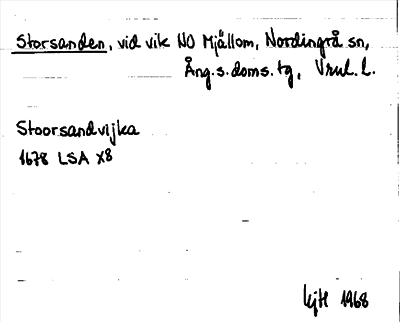 Storsanden, vid vik NO Mjällom, Nordingrå sn,
Ång.s.doms.tg, Vrml. l.
Stoorsandvijka
1678 LSA X8
1968